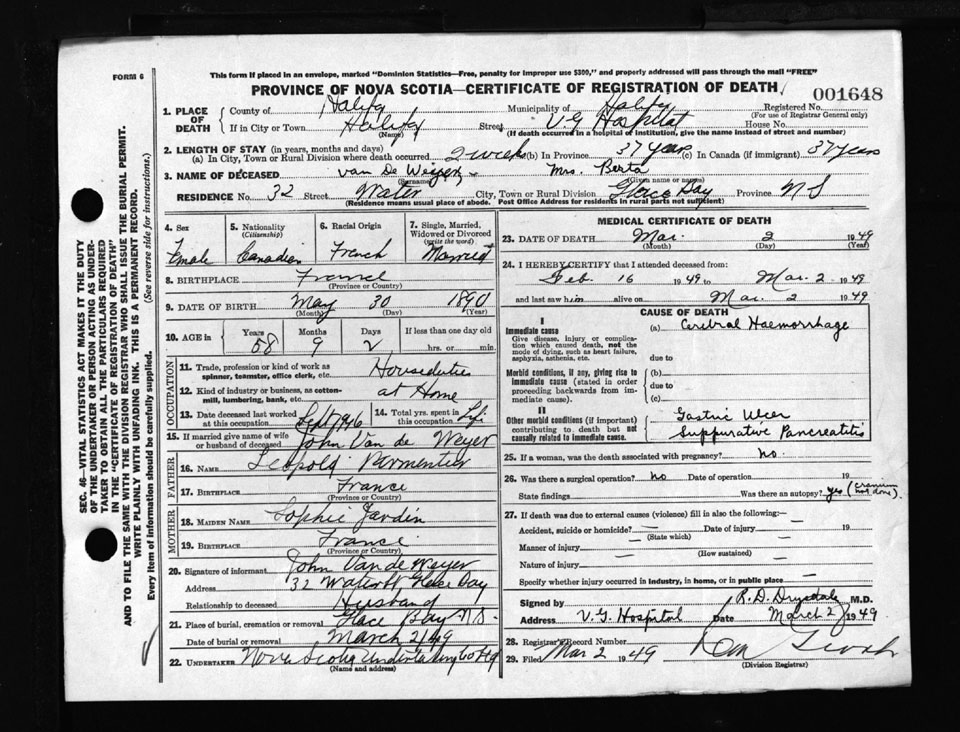 FORM 6
This form if placed in an envelope, marked "Dominion Statistics—Free, penalty for improper use $300," and properly addressed will pass through the mail "FREE"
PROVINCE OF NOVA SCOTIA—CERTIFICATE OF REGISTRATION OF DEATH
001648
1. PLACE OF DEATH
County of Halifax Municipality of Halifax Registered No.
(For use of Registrar General only)
If in City or Town Halifax Street V G Hospital House No.
(Name) (If death occurred in a hospital of institution, give the name instead of street and number)
2. LENGTH OF STAY (in years, months and days)
(a) In City, Town or Rural Division where death occurred 2 weeks (b) In Province 37 years (c) In Canada (if immigrant) 37 years
3. NAME OF DECEASED Van De Weyer, Mrs. Berta
(Surname) (Given name or names)
RESIDENCE No. 32 Street Water City, Town or Rural Division Glace Bay Province N S
(Residence means usual place of abode. Post Office Address for residents in rural parts not sufficient)
4. Sex Female
5. Nationality (Citizenship) Canadian
6. Racial Origin French
7. Single, Married, Widowed or Divorced (write the word) Married
8. BIRTHPLACE France
(Province or Country)
9. DATE OF BIRTH May 30 1890
(Month) (Day) (Year)
10. AGE in Years 58 Months 9 Days 2 If less than one day old hrs. or min.
OCCUPATION
11. Trade, profession or kind of work as spinner, teamster, office clerk, etc. Houseduties
12. Kind of industry or business, as cotton-mill, lumbering, bank, etc. at Home
13. Date deceased last worked at this occupation Sept 1946
14. Total yrs. spent in this occupation Life
15. If married give name of wife or husband of deceased John Van de Weyer
FATHER
16. NAME Leopold Permentier
17. BIRTHPLACE France
(Province or Country)
MOTHER
18. MAIDEN NAME Sophie Jardin
19. BIRTHPLACE France
(Province or Country)
20. Signature of informant John Van de Weyer
Address 32 Water St Glace Bay
Relationship to deceased Husband
21. Place of burial, cremation or removal Glace Bay N.S.
Date of burial or removal March 2/49
22. UNDERTAKER Nova Scotia Undertaking Co
MEDICAL CERTIFICATE OF DEATH
23. DATE OF DEATH Mar. 2 1949
(Month) (Day) (Year)
24. I HEREBY CERTIFY that I attended deceased from:
Feb. 16 1949 to Mar. 2 1949
and last saw him alive on Mar. 2 1949
CAUSE OF DEATH
I
Immediate cause
Give disease, injury or complication which caused death, not the mode of dying, such as heart failure, asphyxia, asthenia, etc.
(a) Cerebral Haemorrhage
due to
Morbid conditions, if any, giving rise to immediate cause (stated in order proceeding backwards from immediate cause).
(b)
due to
(c)
II
Other morbid conditions (if important) contributing to death but not causally related to immediate cause.
Gastric Ulcer
Suppurative Pancreatitis
25. If a woman, was the death associated with pregnancy? no.
26. Was there a surgical operation? no Date of operation 19
State findings Was there an autopsy? yes (cranium not done).
27. If death was due to external causes (violence) fill in also the following:—
Accident, suicide or homicide? — Date of injury — 19
(State which)
Manner of injury —
(How sustained)
Nature of injury —
Specify whether injury occurred in industry, in home, or in public place —
Signed by R. D. Drysdale M.D.
Address V. G. Hospital Date March 2 1949
28. Registrar's Record Number
29. Filed Mar 2 1949
(Division Registrar)
SEC. 46—VITAL STATISTICS ACT MAKES IT THE DUTY
OF THE UNDERTAKER OR PERSON ACTING AS UNDER-
TAKER TO OBTAIN ALL THE PARTICULARS REQUIRED
IN THE "CERTIFICATE OF REGISTRATION OF DEATH"
AND TO FILE THE SAME WITH THE DIVISION REGISTRAR WHO SHALL ISSUE THE BURIAL PERMIT.
WRITE PLAINLY WITH UNFADING INK. THIS IS A PERMANENT RECORD.
Every item of information should be carefully supplied. (See reverse side for instructions.)